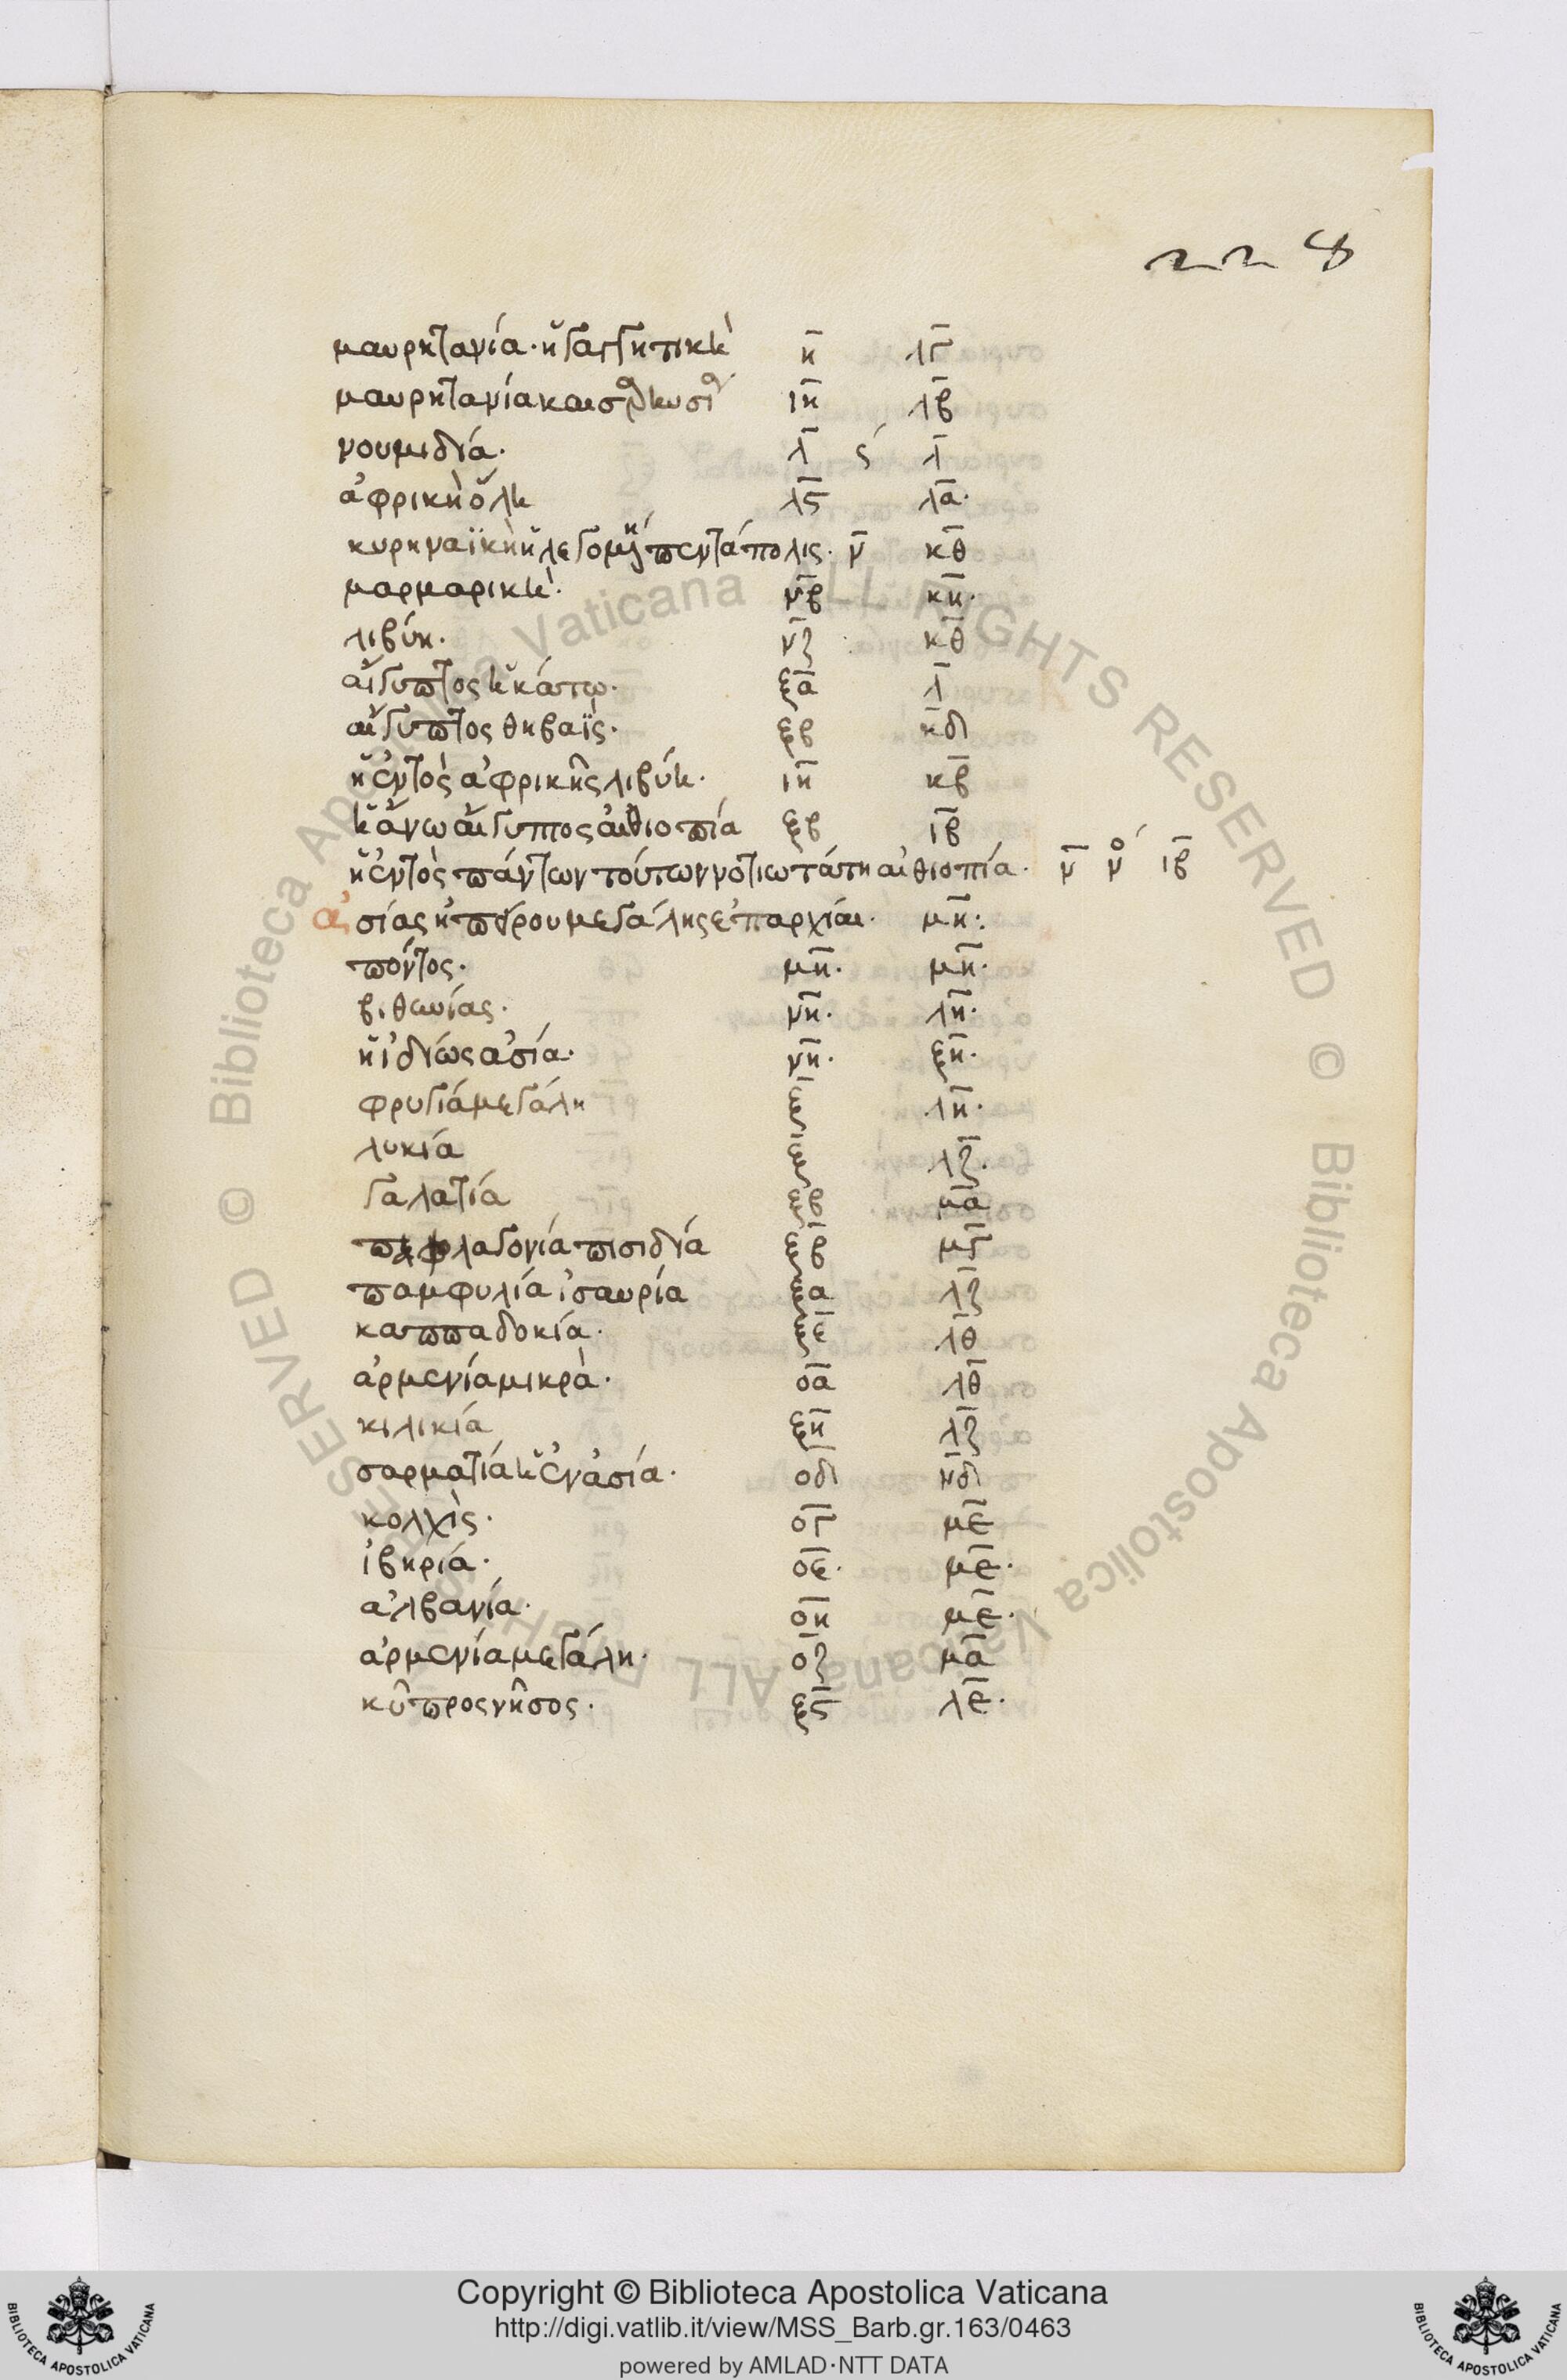 228
μαυρητανία· ἡ γαγγητικὴ η̅ λγ̅
μαυρητανία ιη̅ λβ̅
νουμιδία· λ̅ ϛ´ λ̅
ἀφρικὴ ὅλη λϛ̅ λα̅·
κυρηναϊκὴ ἡ λεγομένη καὶ πεντάπολις· ν̅ κθ̅
μαρμαρικὴ· νβ̅ κη̅·
λιβύη· νζ̅ κθ̅
αἴγυπτος ἡ κάτω· ξα̅ λ̅
αἴγυπτος θηβαῒς· ξβ̅ κδ̅
ἡ ἐντὸς ἀφρικῆς λιβύη· ιη̅ κβ̅
ἡ ἄνω αἴγυπτος αἰθιοπία ξβ̅ ιβ̅
ἡ ἐντὸς πάντων τούτων νοτιωτάτη αἰθιοπία· ν̅ ιβ̅
ἀσίας ἠπείρου μεγάλης ἐπαρχίαι· μη̅:
πόντος· μη̅· μη̅·
βιθωνίας· νη̅· λη̅·
ἡ ἰδίως ἀσία· νη̅· ξη̅·
φρυγία μεγάλη ξ̅ λη̅·
λυκία ξ̅ λζ̅·
γαλατία ξβ̅ μα̅
παφλαγονία πισιδία ξβ̅ μγ̅
παμφυλία ἰσαυρία ξα̅ λζ̅
καππαδοκία· ξε̅ λθ̅
ἀρμενία μικρὰ· οα̅ λθ̅
κιλικία ξη̅ λζ̅
σαρματία ἡ ἐν ἀσία· οδ̅ νδ̅
κολχὶς· ογ̅ με̅
ἰβηρία· οε̅· με̅·
ἀλβανία· οη̅ με̅·
ἀρμενία μεγάλη· οζ̅ μα̅
κῦπρος νῆσος· ξϛ̅ λε̅·
© Biblioteca Apostolica Vaticana ALL RIGHTS RESERVED © Biblioteca Apostolica Vaticana ALL RIGHTS RESERVED
Copyright © Biblioteca Apostolica Vaticana
http://digi.vatlib.it/view/MSS_Barb.gr.163/0463
powered by AMLAD·NTT DATA
BIBLIOTECA APOSTOLICA VATICANA
BIBLIOTECA APOSTOLICA VATICANA